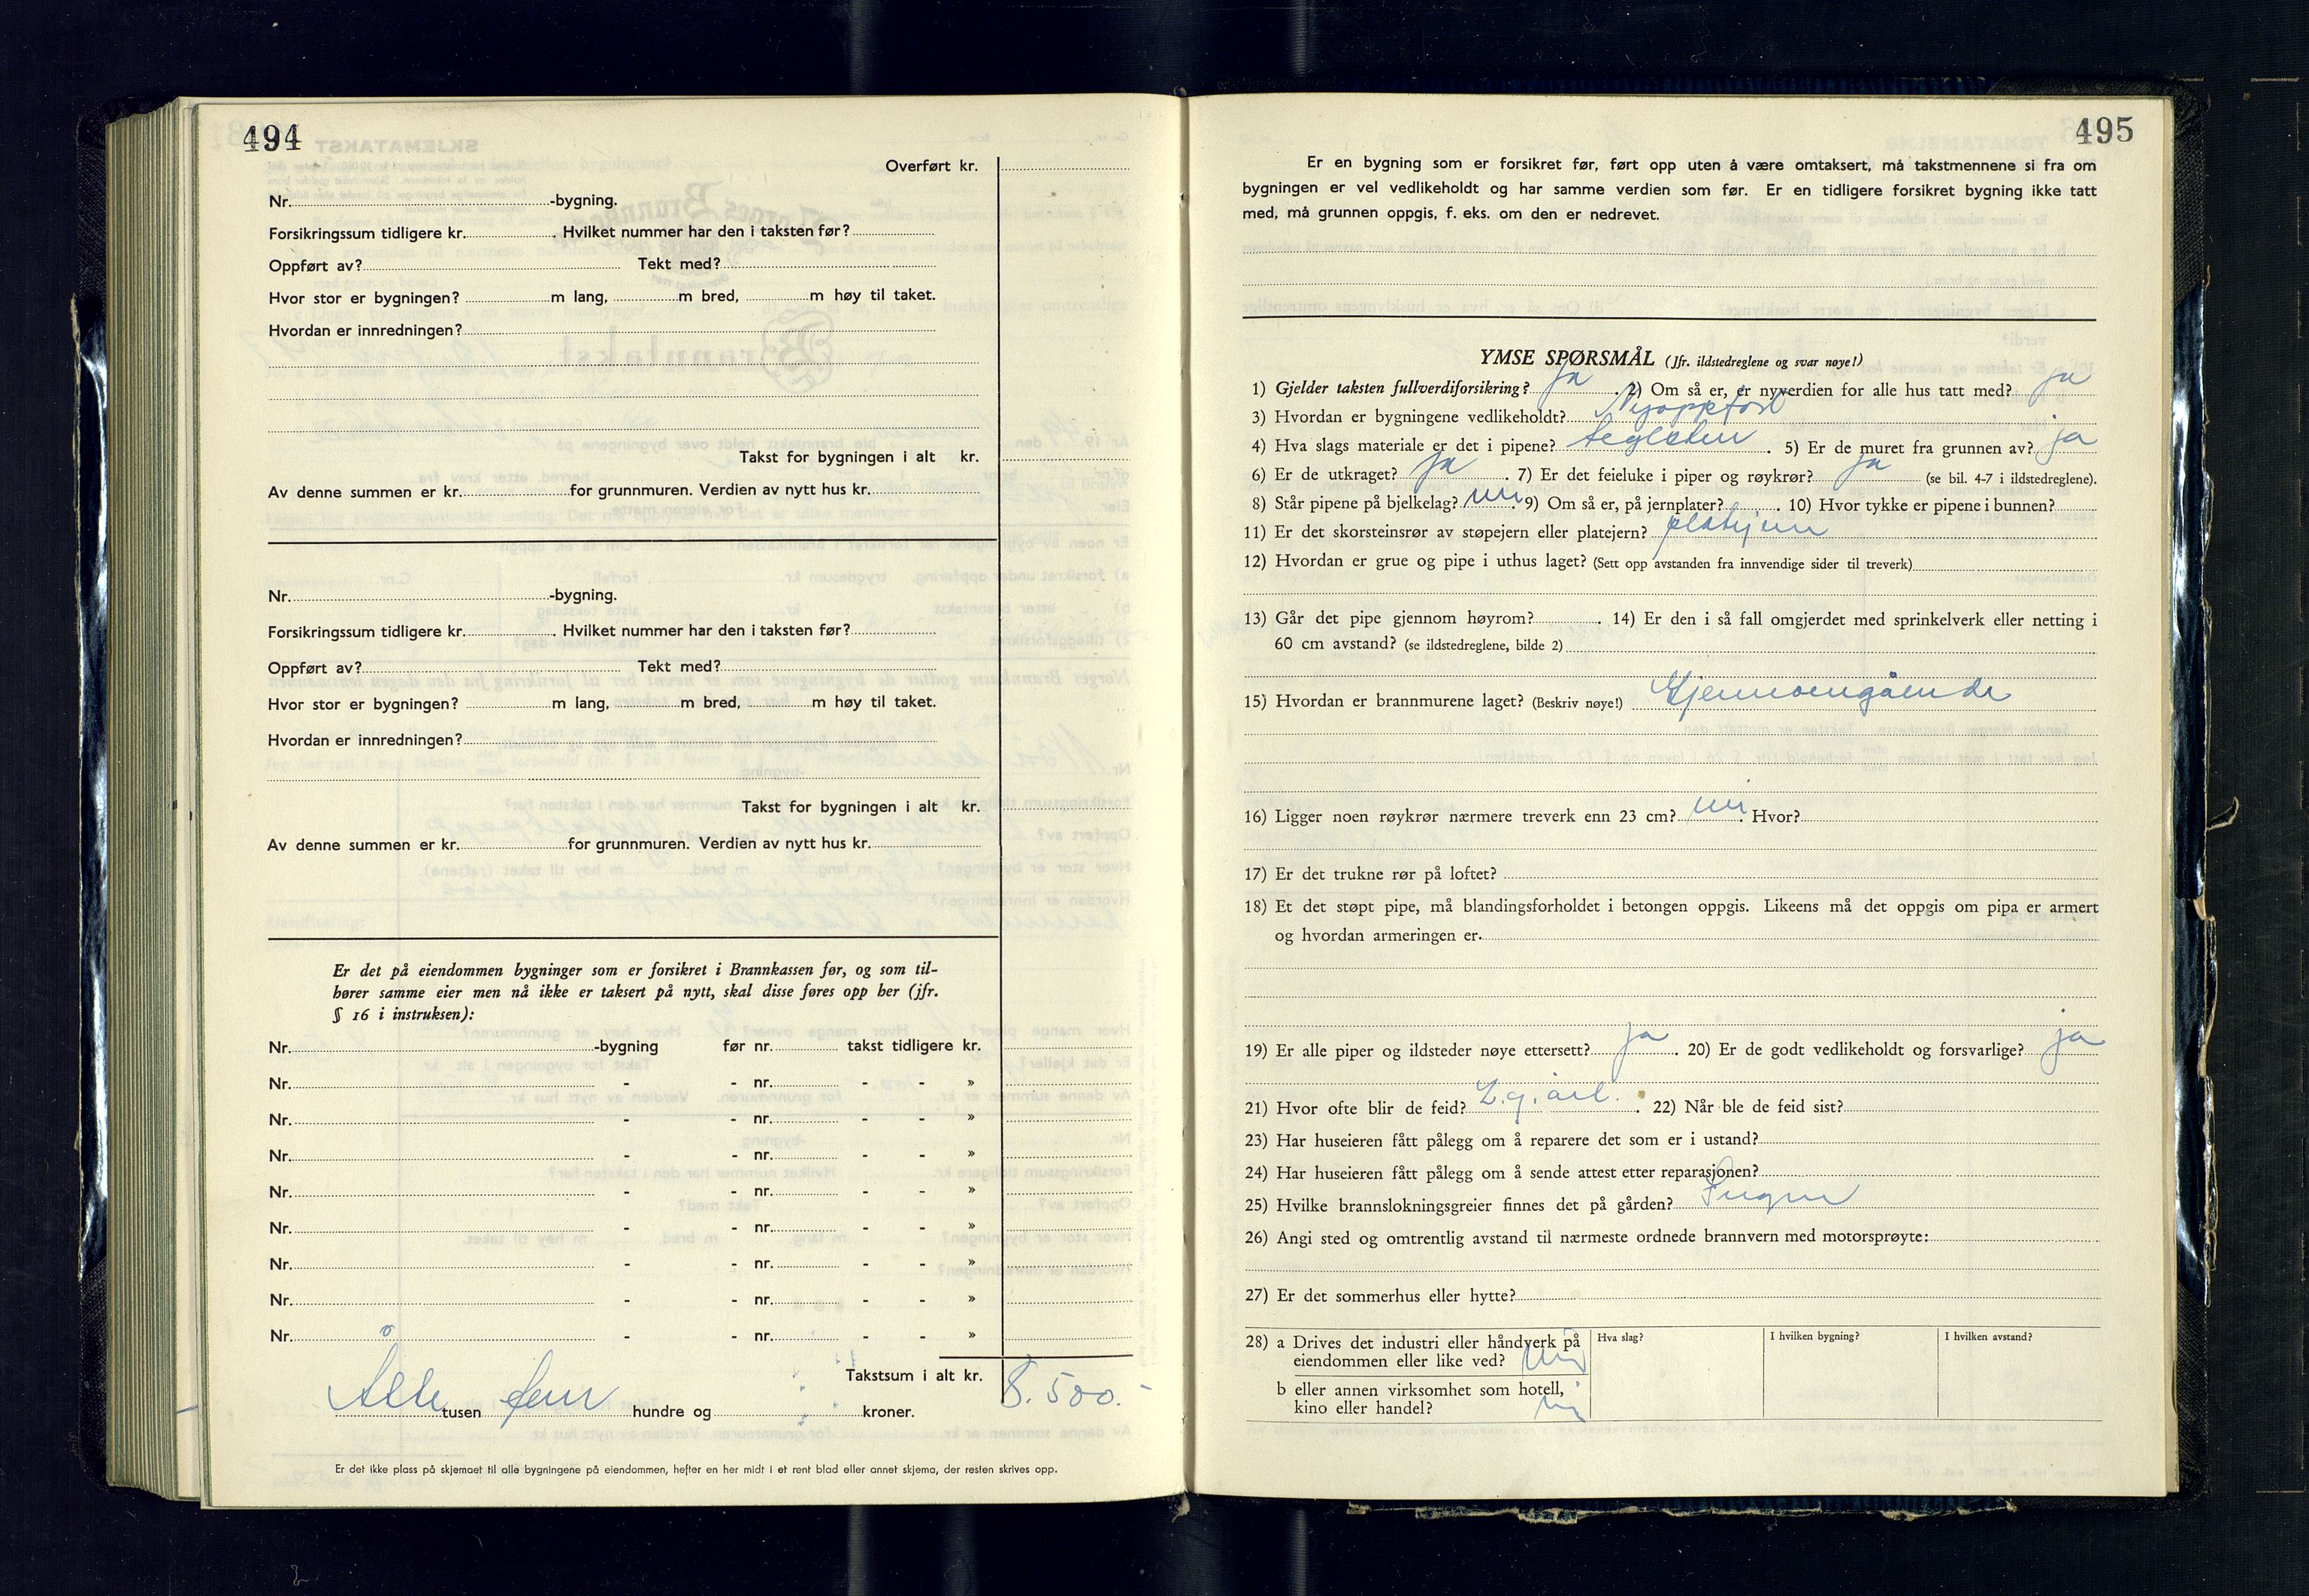 494
Overført kr.
Nr. -bygning.
Forsikringssum tidligere kr. . Hvilket nummer har den i taksten før?
Oppført av? Tekt med?
Hvor stor er bygningen? m lang, m bred, m høy til taket.
Hvordan er innredningen?
Takst for bygningen i alt kr.
Av denne summen er kr. for grunnmuren. Verdien av nytt hus kr.
Nr. -bygning.
Forsikringssum tidligere kr. . Hvilket nummer har den i taksten før?
Oppført av? Tekt med?
Hvor stor er bygningen? m lang, m bred, m høy til taket.
Hvordan er innredningen?
Takst for bygningen i alt kr.
Av denne summen er kr. for grunnmuren. Verdien av nytt hus kr.
Er det på eiendommen bygninger som er forsikret i Brannkassen før, og som til-
hører samme eier men nå ikke er taksert på nytt, skal disse føres opp her (jfr.
§ 16 i instruksen):
Nr. -bygning før nr. takst tidligere kr.
Nr. - - nr. - - »
Nr. - - nr. - - »
Nr. - - nr. - - »
Nr. - - nr. - - »
Nr. - - nr. - - »
Nr. - - nr. - - »
Nr. - - nr. - - »
Nr. - - nr. - - »
Takstsum i alt kr. 8.500.-
Åtte tusen fem hundre og kroner.
Er det ikke plass på skjemaet til alle bygningene på eiendommen, hefter en her midt i et rent blad eller annet skjema, der resten skrives opp.
495
Er en bygning som er forsikret før, ført opp uten å være omtaksert, må takstmennene si fra om
bygningen er vel vedlikeholdt og har samme verdien som før. Er en tidligere forsikret bygning ikke tatt
med, må grunnen oppgis, f. eks. om den er nedrevet.
YMSE SPØRSMÅL (Jfr. ildstedreglene og svar nøye!)
1) Gjelder taksten fullverdiforsikring? ja . 2) Om så er, er nyverdien for alle hus tatt med? ja
3) Hvordan er bygningene vedlikeholdt? Nyoppført
4) Hva slags materiale er det i pipene? teglsten . 5) Er de muret fra grunnen av? ja
6) Er de utkraget? ja . 7) Er det feieluke i piper og røykrør? ja (se bil. 4-7 i ildstedreglene).
8) Står pipene på bjelkelag? nei . 9) Om så er, på jernplater? . 10) Hvor tykke er pipene i bunnen?
11) Er det skorsteinsrør av støpejern eller platejern? platejern
12) Hvordan er grue og pipe i uthus laget? (Sett opp avstanden fra innvendige sider til treverk)
13) Går det pipe gjennom høyrom? . 14) Er den i så fall omgjerdet med sprinkelverk eller netting i
60 cm avstand? (se ildstedreglene, bilde 2)
15) Hvordan er brannmurene laget? (Beskriv nøye!) Gjennomgående
16) Ligger noen røykrør nærmere treverk enn 23 cm? nei . Hvor?
17) Er det trukne rør på loftet?
18) Et det støpt pipe, må blandingsforholdet i betongen oppgis. Likeens må det oppgis om pipa er armert
og hvordan armeringen er.
19) Er alle piper og ildsteder nøye ettersett? ja . 20) Er de godt vedlikeholdt og forsvarlige? ja
21) Hvor ofte blir de feid? 2.g.årl. . 22) Når ble de feid sist?
23) Har huseieren fått pålegg om å reparere det som er i ustand?
24) Har huseieren fått pålegg om å sende attest etter reparasjonen?
25) Hvilke brannslokningsgreier finnes det på gården? Ingen
26) Angi sted og omtrentlig avstand til nærmeste ordnede brannvern med motorsprøyte:
27) Er det sommerhus eller hytte?
28) a Drives det industri eller håndverk på
eiendommen eller like ved? Nei
b eller annen virksomhet som hotell,
kino eller handel? nei
Hva slag?
I hvilken bygning?
I hvilken avstand?